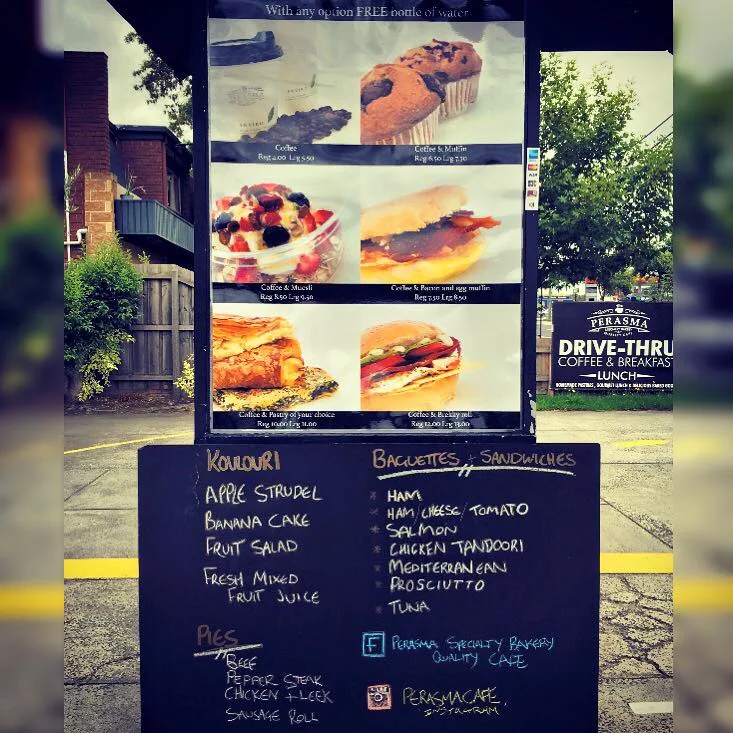 With any option FREE bottle of water
Coffee
Reg 4.00 Lrg 5.50
Coffee & Muffin
Reg 6.50 Lrg 7.50
Coffee & Muesli
Reg 8.50 Lrg 9.50
Coffee & Bacon and egg muffin
Reg 7.50 Lrg 8.50
Coffee & Pastry of your choice
Reg 10.00 Lrg 11.00
Coffee & Brekky roll
Reg 12.00 Lrg 13.00
PERASMA
DRIVE-THRU
COFFEE & BREAKFAST
LUNCH
KOULOURI
APPLE STRUDEL
BANANA CAKE
FRUIT SALAD
FRESH MIXED
FRUIT JUICE
PIES
BEEF
PEPPER STEAK
CHICKEN + LEEK
SAUSAGE ROLL
BAGUETTES + SANDWICHES
* HAM
* HAM/CHEESE/TOMATO
* SALMON
* CHICKEN TANDOORI
* MEDITERRANEAN
* PROSCIUTTO
* TUNA
F PERASMA SPECIALTY BAKERY
QUALITY CAFE
PERASMACAFE.
INSTAGRAM